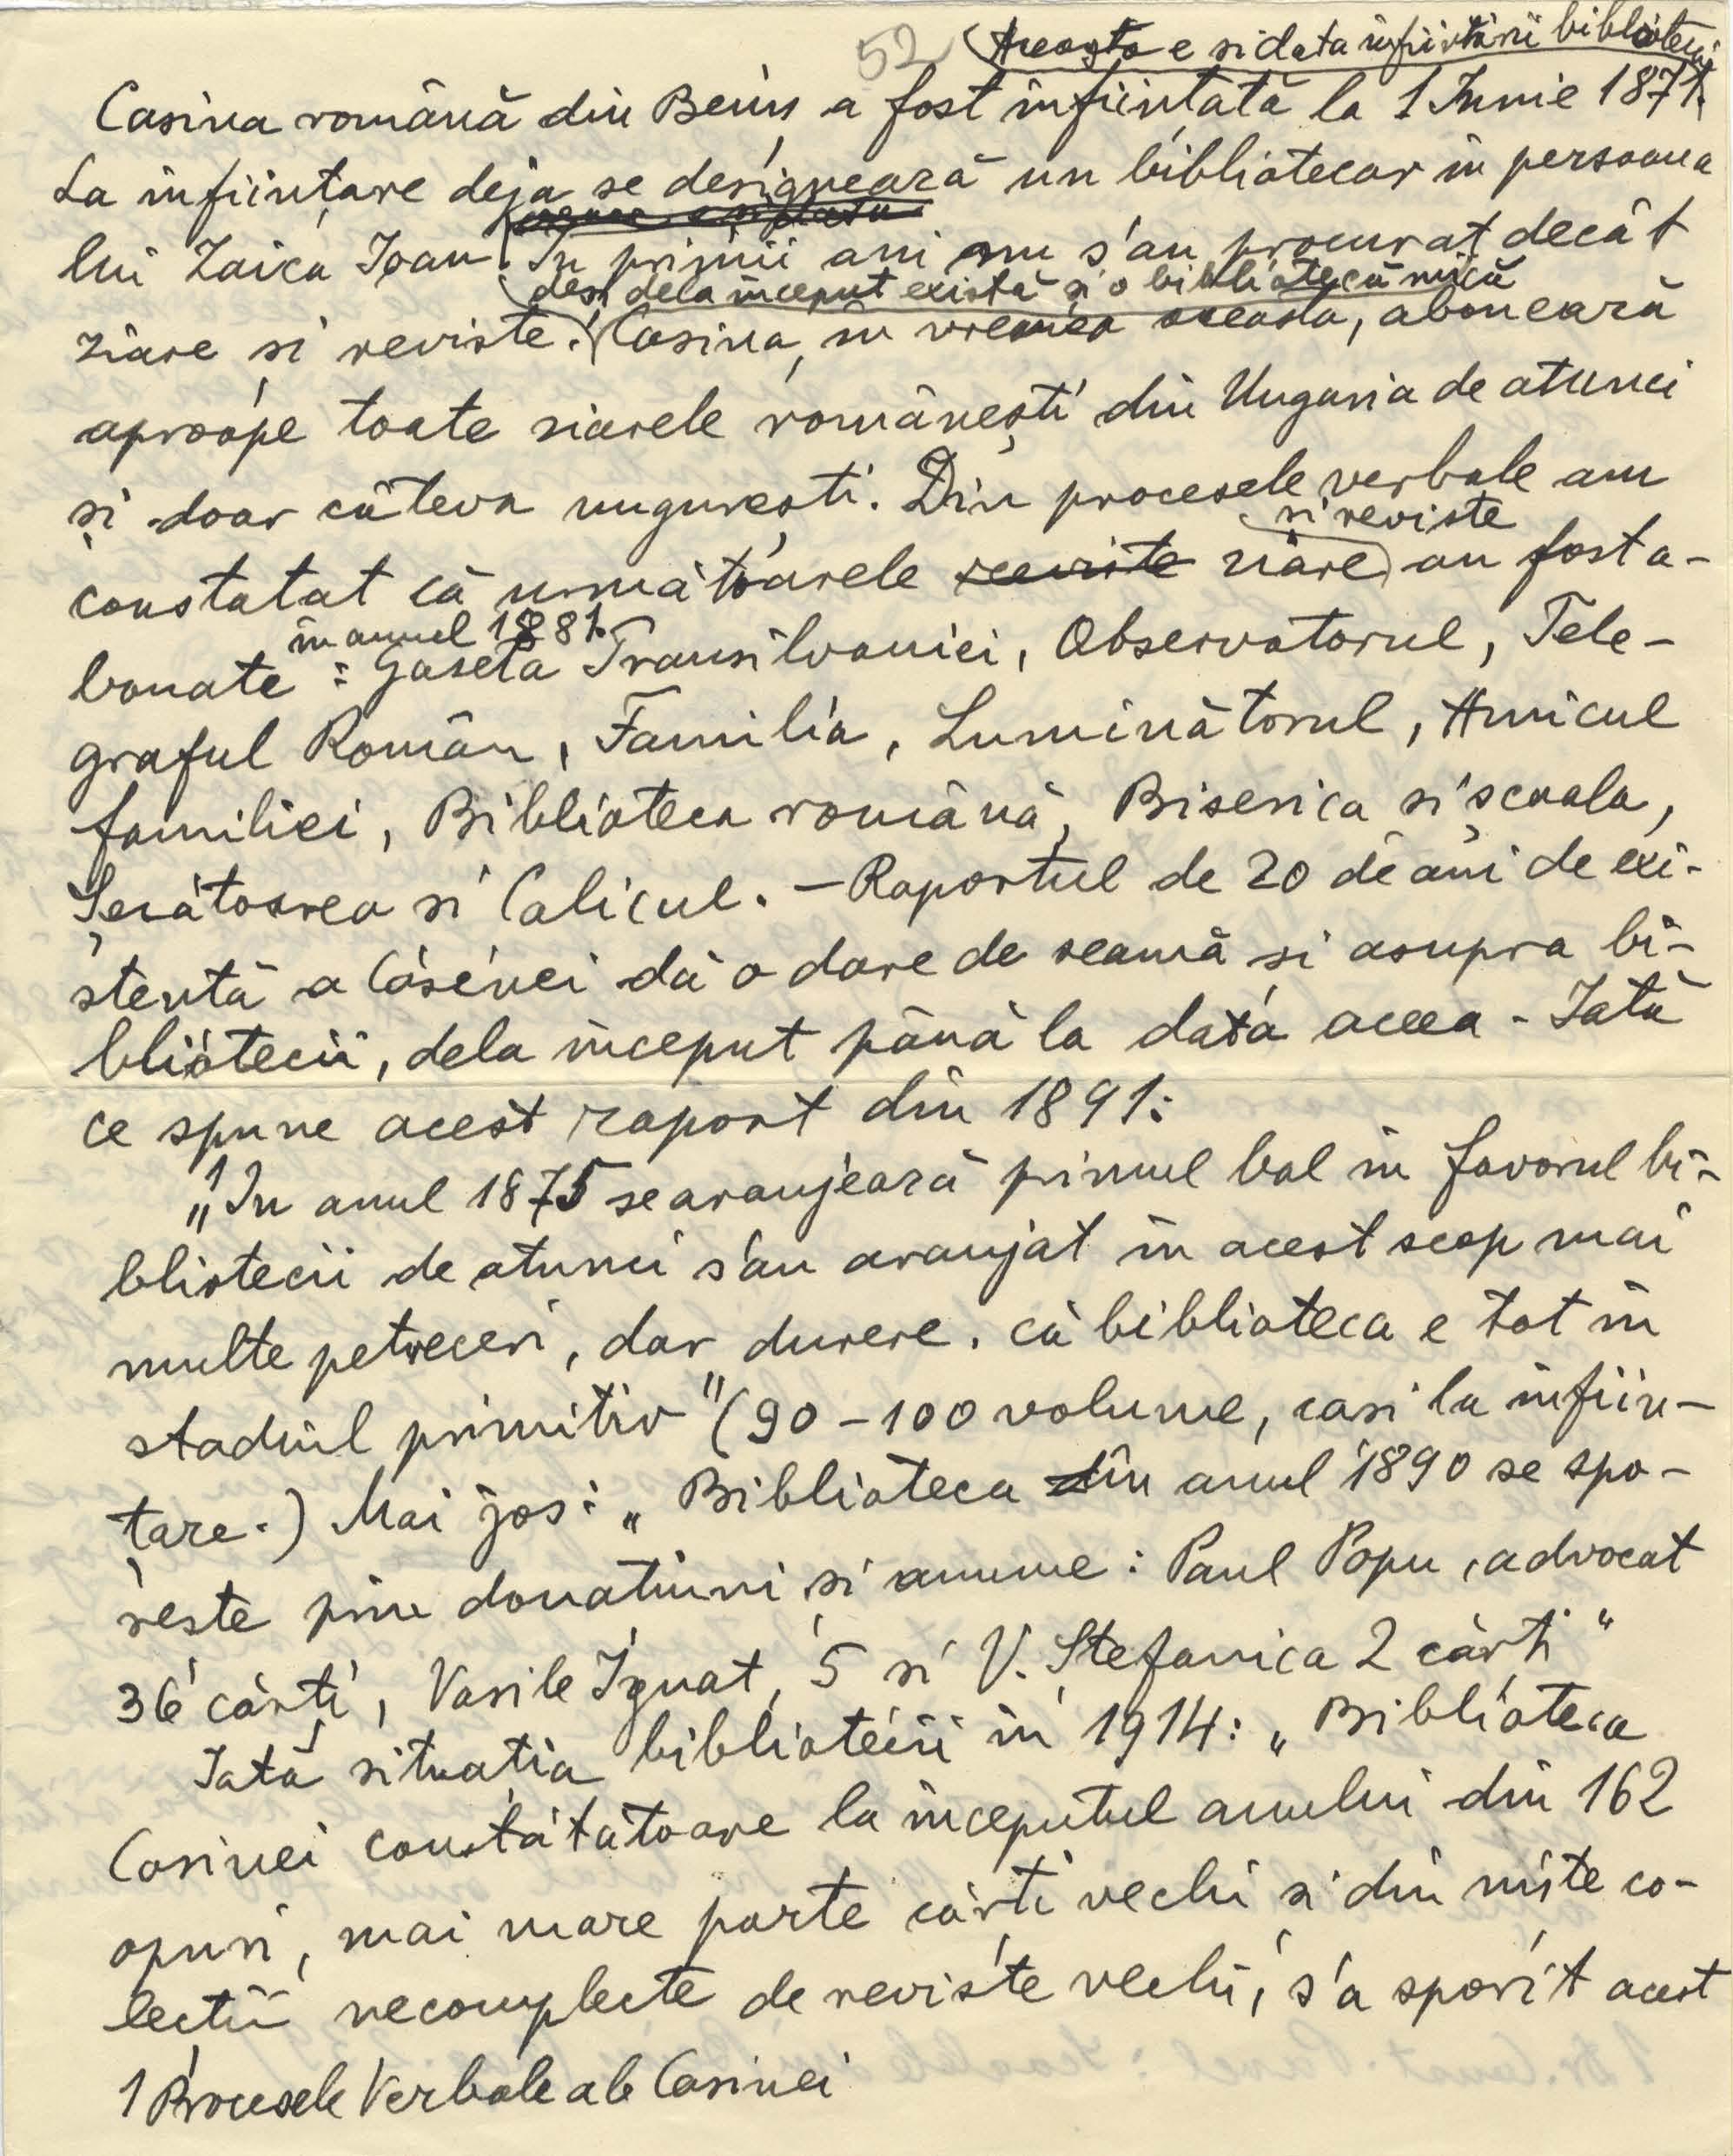 52 (Aceasta e și data înființării bibliotecii
Casina română din Beiuș a fost înființată la 1 Iunie 1871.
La înființare deja se designează un bibliotecar în persoana
lui Zaica Ioan. In primii ani nu s'au procurat decât
deși dela început există și o bibliotecă mică
ziare și reviste. Casina, în vremea aceasta, abonează
aproape toate ziarele românești din Ungaria de atunci
și doar câteva ungurești. Din procesele verbale am
și reviste
constatat că următoarele reviste ziare au fost a-
în anul 1881
bonate: Gazeta Transilvaniei, Observatorul, Tele-
graful Român, Familia, Luminătorul, Amicul
familiei, Biblioteca română, Biserica și școala,
Șezătoarea și Calicul. – Raportul de 20 de ani de exi-
stență a Casinei dă o dare de seamă și asupra bi-
bliotecii, dela început până la data aceea - Iată
ce spune acest raport din 1891:
„In anul 1875 se aranjează primul bal în favorul bi-
bliotecii de atunci s'au aranjat în acest scop mai
multe petreceri, dar durere, că biblioteca e tot în
stadiul primitiv"1 (90 – 100 volume, ca și la înfiin-
țare.) Mai jos: „Biblioteca în anul 1890 se spo-
rește prin donațiuni și anume: Paul Popu, advocat
36 cărți, Vasile Ignat, 5 și V. Ștefanica 2 cărți"
Iată situația bibliotecii în 1914: „Biblioteca
Casinei constătătoare la începutul anului din 162
opuri, mai mare parte cărți vechi și din niște co-
lecții necomplecte de reviste vechi, s'a sporit acest
1 Procesele Verbale ale Casinei